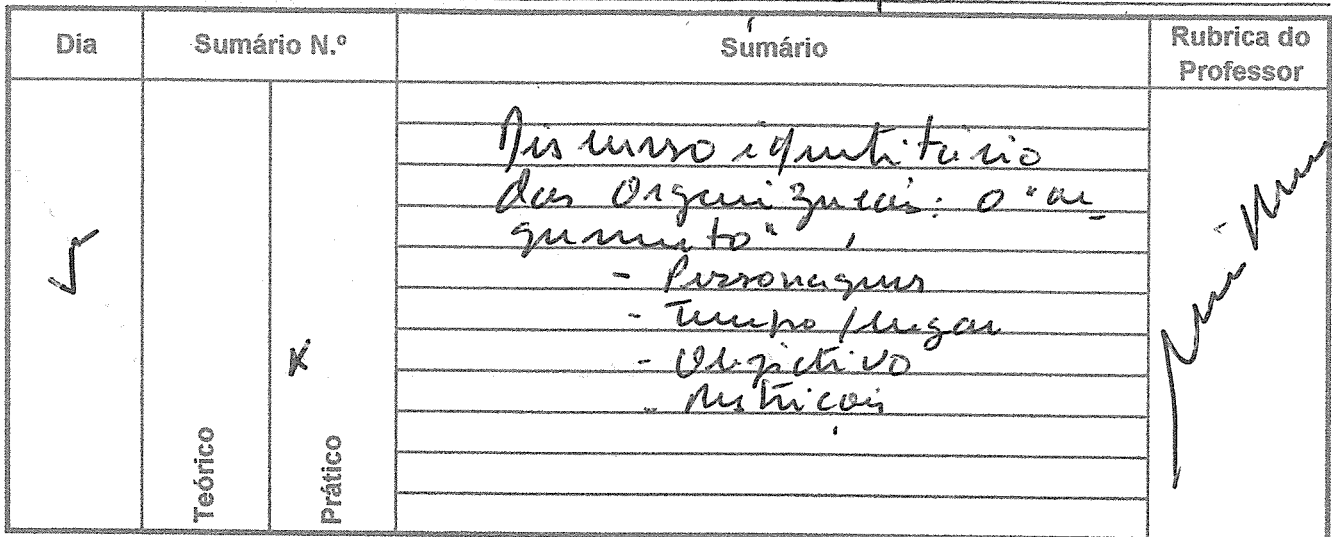 Dia Sumário N.º Sumário Rubrica do Professor
Teórico
Prático
x
Discurso identitário
das Organizações: o "ar-
gumento"
- Personagens
- Tempo / lugar
- Objectivo
- Restrições